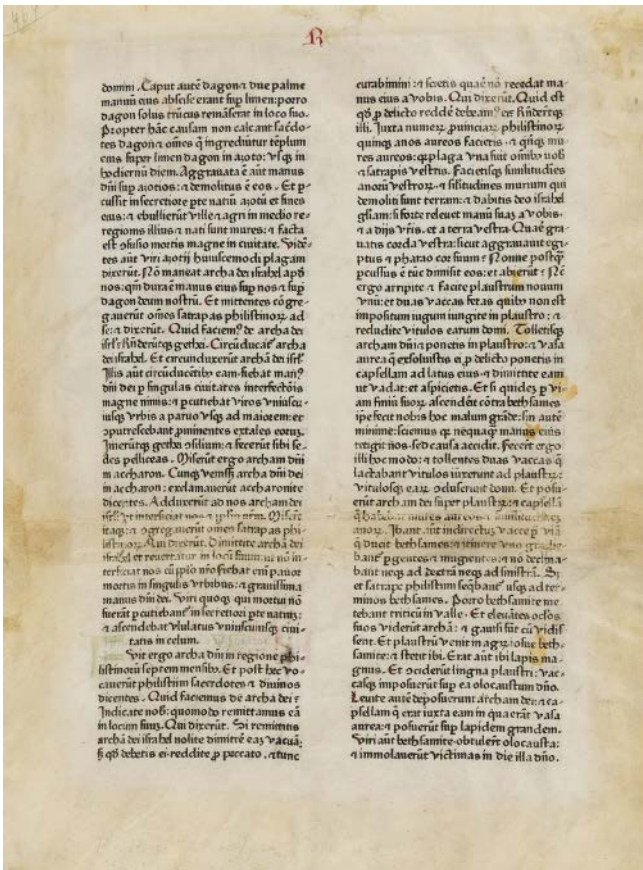 R
domini. Caput autē dagon ⁊ due palme
manuū eius abscise erant suꝑ limen: porro
dagon solus trūcus remāserat in loco suo.
Propter hāc causam non calcant sac̄do-
tes dagon ⁊ om̄es q̄ ingrediūtur tēplum
eius super limen dagon in azoto: vsq̄ in
hodiernū diem. Aggrauata ē aūt manus
dn̄i suꝑ azotios: ⁊ demolitus ē eos. Et ꝑ-
cussit in secretiore ꝑte natiū azotū et fines
eius: ⁊ ebullierūt ville ⁊ agri in medio re-
gionis illius ⁊ nati sunt mures: ⁊ facta
est ꝯfusio mortis magne in ciuitate. Vidē-
tes aūt viri azotij huiuscemodi plagam
dixerūt. Nō maneat archa dei israhel apd̄
nos: qm̄ dura ē manus eius suꝑ nos ⁊ suꝑ
dagon deum nostrū. Et mittentes cōgre-
gauerūt om̄es satrapas philistinoꝝ ad
se: ⁊ dixerūt. Quid faciemꝰ de archa dei
isrl̄? Rn̄derūtqꝫ gethei. Circūducat̄ archa
dei israhel. Et circunduxerūt archā dei isrl̄.
Illis aūt circūducētibꝰ eam fiebat manꝰ
dn̄i dei ꝑ singulas ciuitates interfectōis
magne nimis: ⁊ ꝑcutiebat viros vniuscu-
iusqꝫ vrbis a paruo vsqꝫ ad maiorem: et
ꝯputrescebant ꝓminentes extales eoruꝫ.
Inierūtqꝫ gethei ꝯsilium: ⁊ fecerūt sibi se-
des pelliceas. Miserūt ergo archam dn̄i
in accharon. Cunqꝫ venissꝫ archa dn̄i dei
in accharon: exclamauerūt accharonite
dicentes. Adduxerūt ad nos archam dei
isrl̄ vt interficiat nos ⁊ ipl̄m nr̄m. Miserūt
itaqꝫ: ⁊ ꝯgregauerūt om̄es satrapas phi-
listinoꝝ. Qui dixerūt. Dimittite archā dei
israhel et reuertatur in locū suum: ut nō in-
terficiat nos cū ipl̄o nr̄o fiebat eni pauor
mortis in singulis vrbibus: ⁊ grauissima
manus dn̄i dei. Viri quoqꝫ qui mortui nō
fuerāt ꝑcutiebant̄ in secretiori ꝑte natiuꝫ:
⁊ ascendebat vlulatus vniuscuiusqꝫ ciui-
tatis in celum.
Fuit ergo archa dn̄i in regione phi-
listinorū septem mensibꝰ. Et post hec vo-
cauerūt philistim sacerdotes ⁊ diuinos
dicentes. Quid faciemus de archa dei?
Indicate nob̄: quomodo remittamus eā
in locum suuꝫ. Qui dixerūt. Si remittitis
archā dei israhel nolite dimittē eaꝫ vacuā:
sꝫ qd̄ debetis ei reddite ꝓ peccato. ⁊ tunc
curabimini: ⁊ scietis quaē nō recedat ma-
nus eius a vobis. Qui dixerūt. Quid est
qd̄ ꝓ delicto reddē debeamꝰ ei? Rn̄derūtqꝫ
illi. Iuxta numeꝝ ꝓuinciaꝝ philistinoꝝ
quinqꝫ anos aureos facietis. ⁊ qn̄qꝫ mu-
res aureos: qꝛ plaga vna fuit om̄ibꝰ vob̄
⁊ satrapis vestris. Facietisqꝫ similitudīes
anorū vestroꝝ ⁊ sil̄itudines murium qui
demoliti sunt terram: ⁊ dabitis deo israhel
gl̄iam: si forte releuet manū suaꝫ a vobis.
⁊ a dijs vr̄is. et a terra vestra. Quaē gra-
uatis corda vestra: sicut aggrauauit egi-
ptus ⁊ pharao cor suum? Nonne postqꝫ
ꝑcussus ē tūc dimisit eos: et abierūt? Nūc
ergo arripite ⁊ facite plaustrum nouum
vnū: et duas vaccas fetas quibꝰ non est
impositum iugum iungite in plaustro: ⁊
recludite vitulos earum domi. Tolletisqꝫ
archam dn̄i ⁊ ponetis in plaustro: ⁊ vasa
aurea q̄ exsoluistis ei ꝓ delicto ponetis in
capsellam ad latus eius: ⁊ dimittite eam
ut vadat: et aspicietis. Et si quideꝫ ꝑ vi-
am finiū suoꝝ ascendēit cōtra bethsames
ip̄e fecit nobis hoc malum grāde: sin autē
minime: sciemus qꝛ nequaqꝫ manus eius
tetigit nos. sed casu accidit. Fecerūt ergo
illi hoc modo: ⁊ tollentes duas vaccas q̄
lactabant vitulos iūxerunt ad plaustꝝ:
vitulosqꝫ eaꝝ ꝯcluserūt domi. Et posu-
erūt archam dei super plaustꝝ: ⁊ capsellā
q̄ habebat mures aureos ⁊ similitudines
anoꝝ. Ibant aūt indirectū vacce ꝑ viā
q̄ ducit bethsames: ⁊ itinere vno gradie-
bant̄ ꝑgentes ⁊ mugientes: ⁊ nō declina-
bant neqꝫ ad dextrā neqꝫ ad sinistrā. Sꝫ
et satrape philistim seq̄bant̄ usqꝫ ad ter-
minos bethsames. Porro bethsamite me-
tebant triticū in valle. Et eleuātes oc̄los
suos viderūt archā: ⁊ gauisi sūt cū vidis-
sent. Et plaustrū venit in agꝝ iosue beth-
samite: ⁊ stetit ibi. Erat aūt ibi lapis ma-
gnus. Et ꝯciderūt lingna plaustri: vac-
casqꝫ imposuerūt suꝑ ea olocaustum dn̄o.
Leuite autē deposuerunt archam dei: ⁊ ca-
psellam q̄ erat iuxta eam in qua erāt vasa
aurea: ⁊ posuerūt suꝑ lapidem grandem.
Viri aūt bethsamite obtulerūt olocausta:
⁊ immolauerūt victimas in die illa dn̄o.